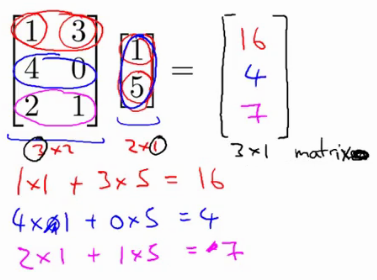 1 3 1 16
4 0 5 = 4
2 1 7
3×2 2×1 3×1 matrix
1×1 + 3×5 = 16
4×1 + 0×5 = 4
2×1 + 1×5 = 7